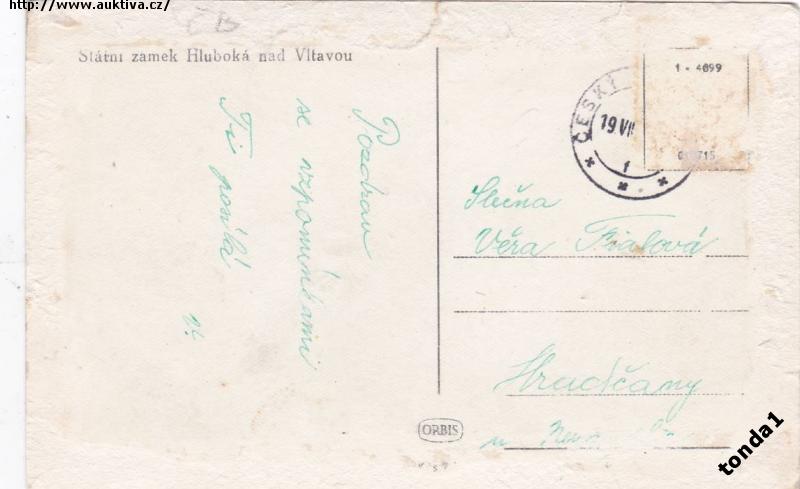 http://www.auktiva.cz/
Státní zámek Hluboká nad Vltavou
Pozdrav
se vzpomínkami
Ti posílá
ČESKÝ
19 VII
1
1 - 4699
Slečna
Věra Fialová
Hradčany
u
ORBIS
tonda1